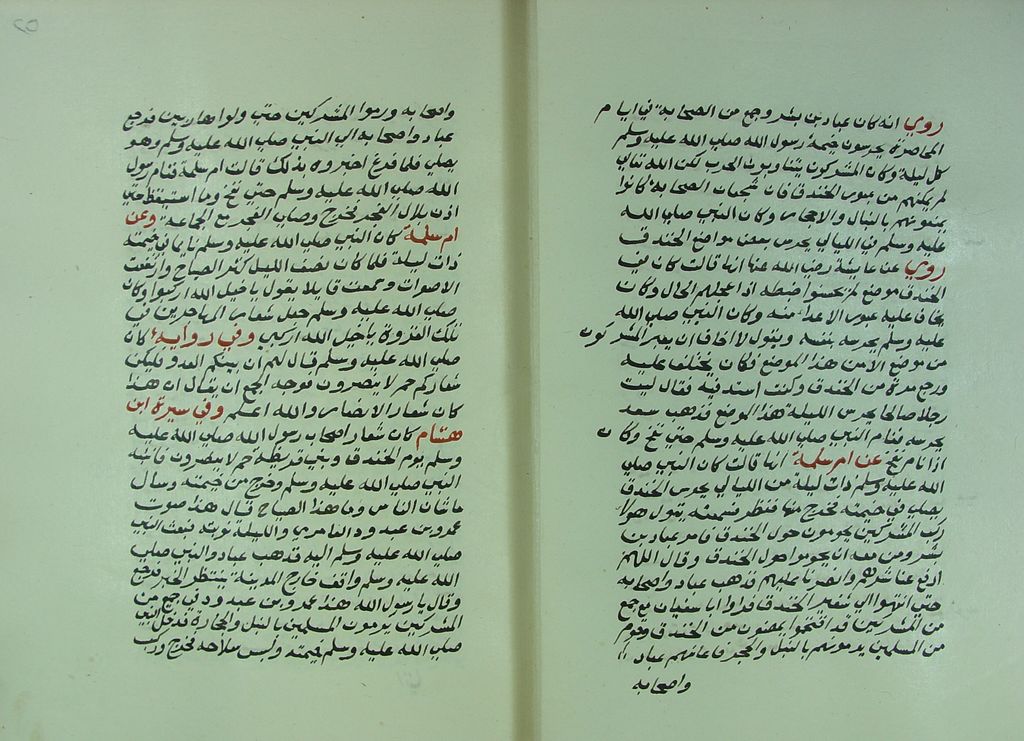 روي انه كان عباد بن بشر وجمع من الصحابة في ايام
المحاصرة يحرسون خيمة رسول الله صلي الله عليه وسلم
كل ليلة وكان المشركون يتناوبون الحرب لكن الله تعالي
لم يمكنهم من عبور الخندق فان شجعان الصحابة كانوا
يمنعونهم بالنبال والاحجار وكان النبي صلي الله
عليه وسلم في الليالي يحرس بعض مواضع الخندق
روي عن عايشة رضي الله عنها انها قالت كان في
الخندق موضع لم يحسنوا ضبطه اذ اعجلهم الحال وكان
يخاف عليه عبور الاعداء منه وكان النبي صلي الله
عليه وسلم يحرسه بنفسه ويقول لا اخاف ان يعبر المشركون
من موضع الا من هذا الموضع فكان يختلف عليه
ورجع مرة من الخندق وكنت اسند فيه فقال ليت
رجلا صالحا يحرس الليلة هذا الموضع فذهب سعد
يحرسه فنام النبي صلي الله عليه وسلم حتي نفخ وكان
اذا نام نفخ عن ام سلمة انها قالت كان النبي صلي
الله عليه وسلم ذات ليلة من الليالي يحرس الخندق
يصلي في خيمته فخرج منها فنظر فسمعته يقول هولا
ركب المشركين يحومون حول الخندق فامر عباد بن
بشر ومن معه ان يحوموا حول الخندق وقال اللهم
ادفع عنا شرهم وانصرنا عليهم فذهب عباد واصحابه
حتي انتهوا الي شفير الخندق فراوا ابا سفيان مع جمع
من المشركين قد اقتحموا من الخندق وقوم
من المسلمين يرمونهم بالنبل والحجر فاعانهم عباد
واصحابه
واصحابه ورموا المشركين حتي ولوا هاربين فرجع
عباد واصحابه الي النبي صلي الله عليه وسلم وهو
يصلي فلما فرغ اخبروه بذلك قالت ام سلمة فنام رسول
الله صلي الله عليه وسلم حتي نفخ وما استيقظ حتي
اذن بلال الفجر فخرج وصلي الفجر مع الجماعة وعن
ام سلمة كان النبي صلي الله عليه وسلم نايما في خيمته
ذات ليلة فلما كان نصف الليل كثر الصياح وارتفعت
الاصوات وسمعت قايلا يقول يا خيل الله اركبوا وكان
صلي الله عليه وسلم جعل شعار المهاجرين في
تلك الغزوة يا خيل الله اركبي وفي رواية كان
صلي الله عليه وسلم قال لهم ان بيتكم العدو فليكن
شعاركم حم لا ينصرون فوجه الجمع ان يقال ان هذا
كان شعار الانصار والله اعلم وفي سيرة ابن
هشام كان شعار اصحاب رسول الله صلي الله عليه
وسلم يوم الخندق وبني قريظة حم لا ينصرون فانتبه
النبي صلي الله عليه وسلم وخرج من خيمته وسال
ما شان الناس وما هذا الصياح قال هذا صوت
عمرو بن عبد ود العامري والليلة نوبته فبعث النبي
صلي الله عليه وسلم اليه فذهب عباد والنبي صلي
الله عليه وسلم واقف خارج المدينة ينتظر الخبر فرجع
وقال يا رسول الله هذا عمرو بن عبد ود في جمع من
المشركين يرمون المسلمين بالنبل والحجارة فدخل النبي
صلي الله عليه وسلم خيمته ولبس سلاحه فخرج وركب